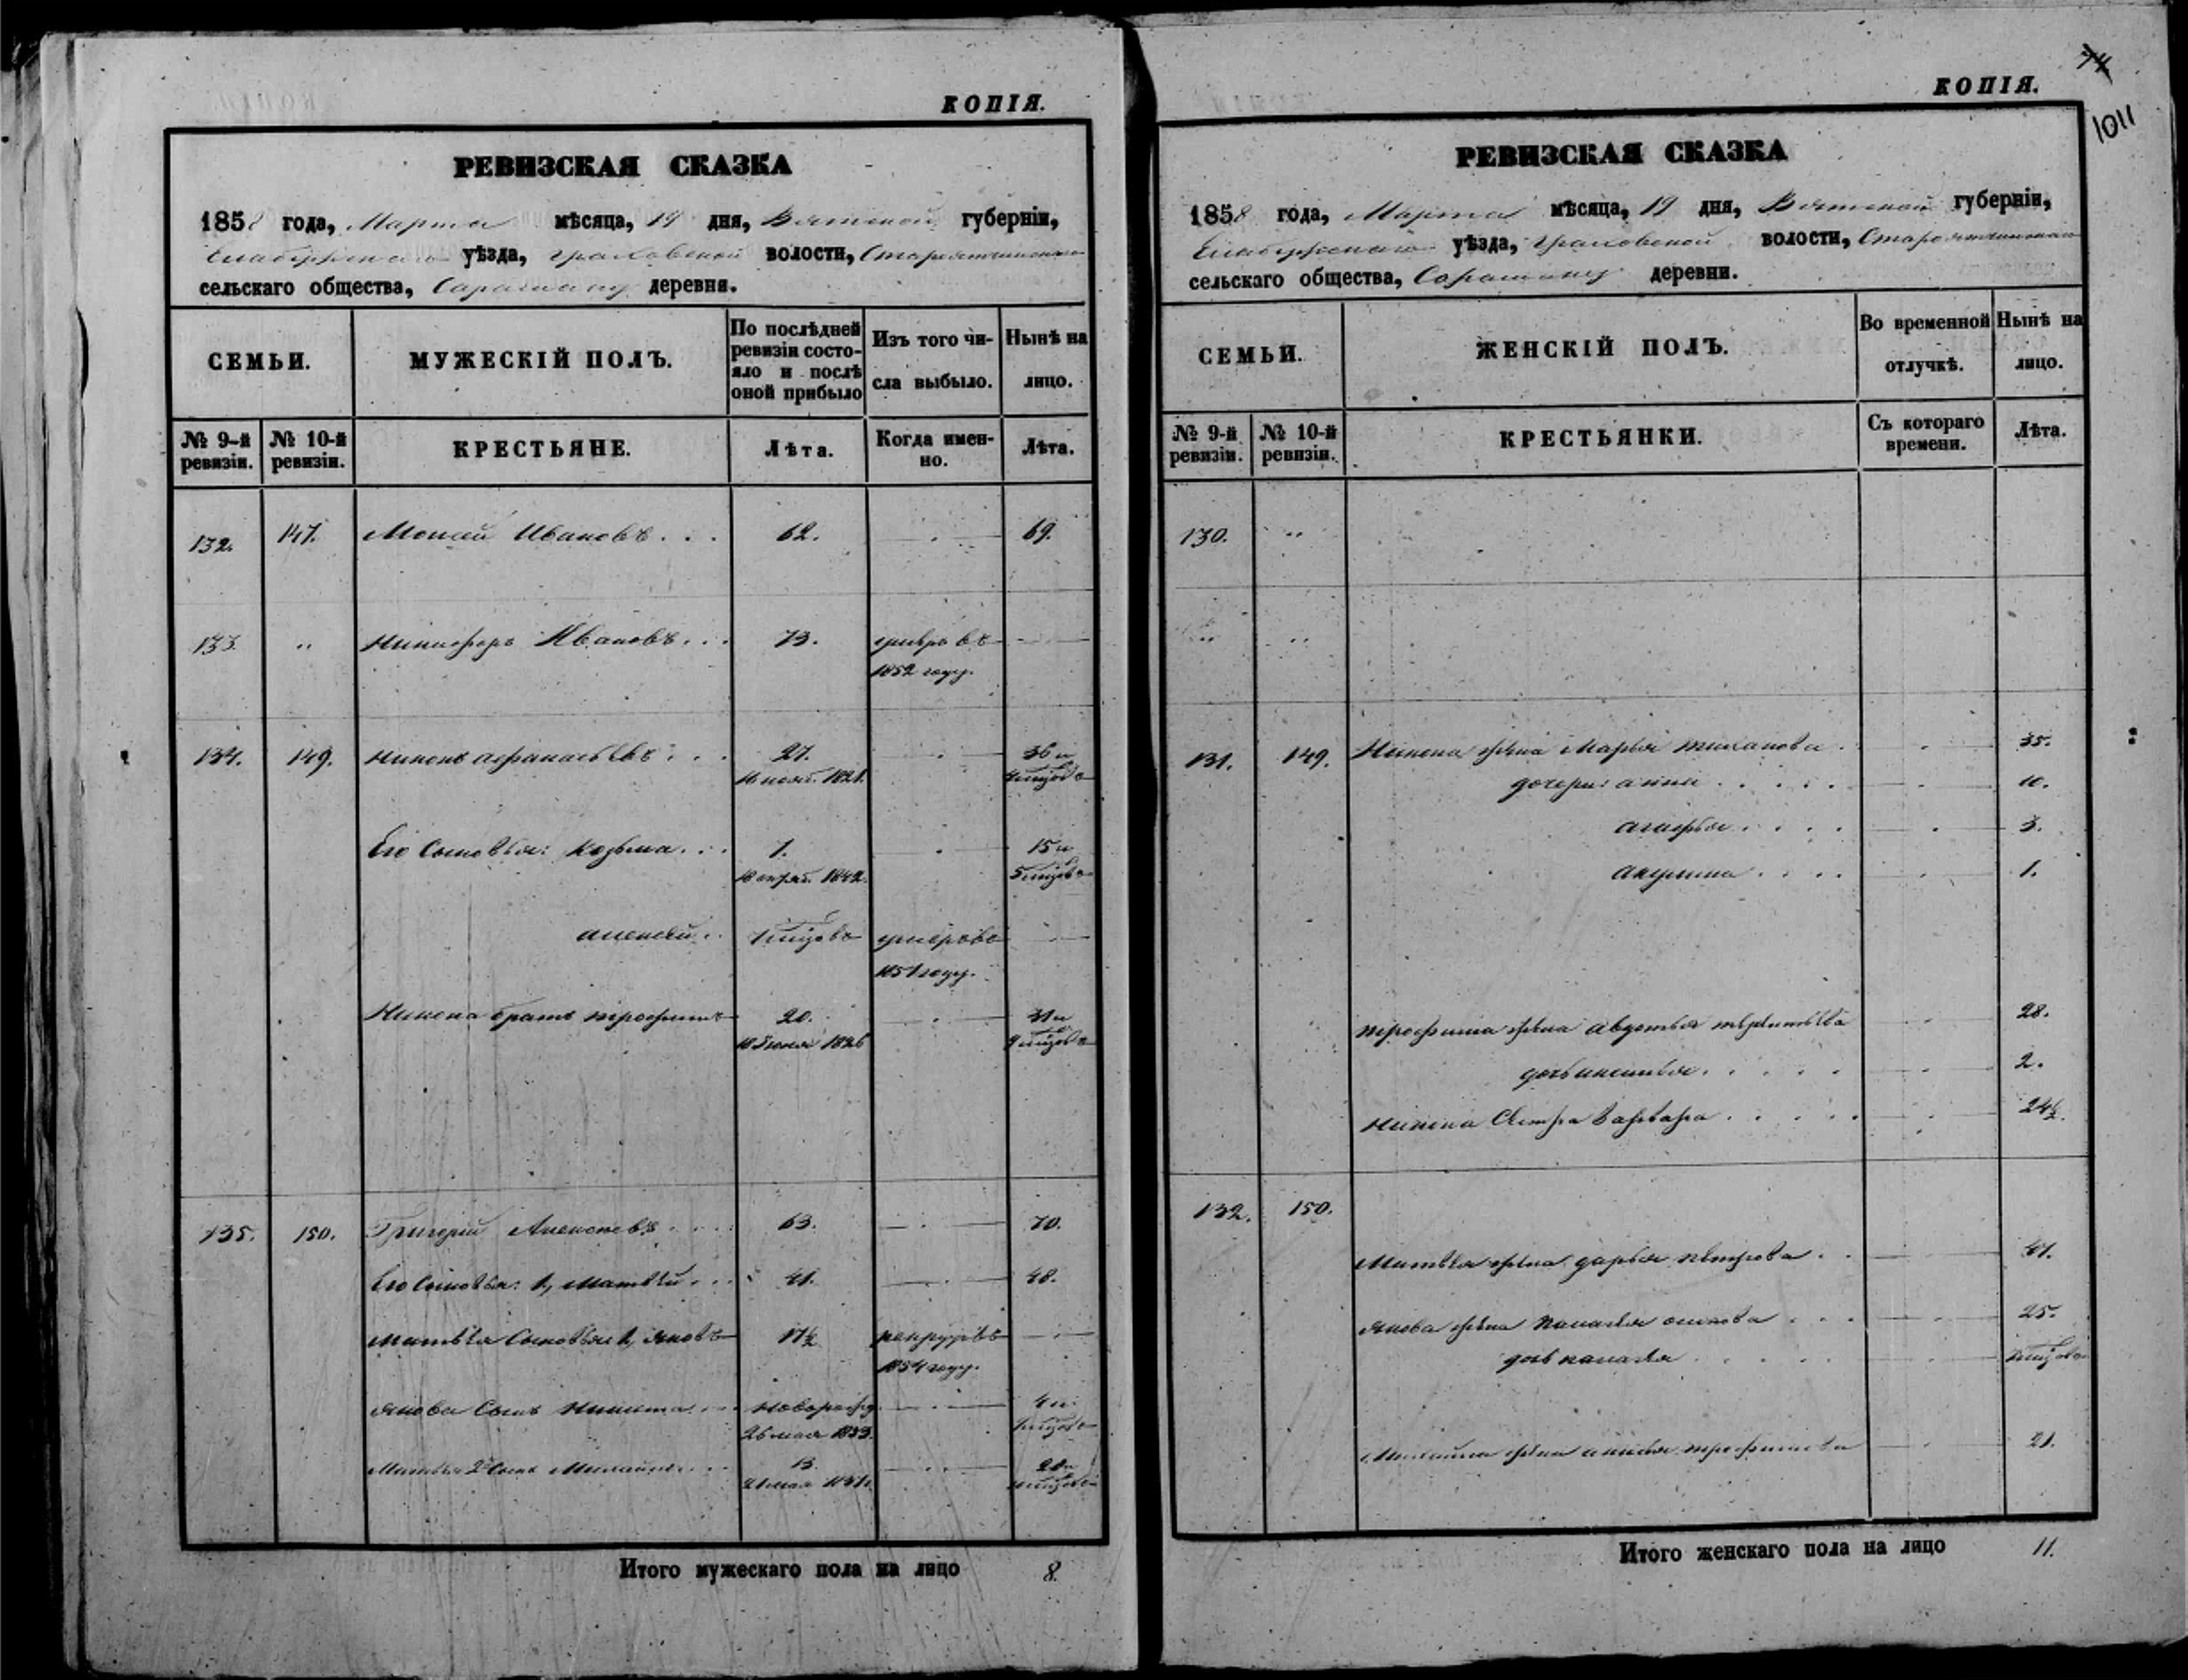 КОПІЯ.
РЕВИЗСКАЯ СКАЗКА
1858 года, Марта мѣсяца, 19 дня, Вятской губерніи,
Елабужскаго уѣзда, Граховской волости,
сельскаго общества, деревня.
СЕМЬИ.
МУЖЕСКІЙ ПОЛЪ.
По послѣдней
ревизіи состо-
яло и послѣ
оной прибыло
Изъ того чи-
сла выбыло.
Нынѣ на
лицо.
№ 9-й
ревизіи.
№ 10-й
ревизіи.
КРЕСТЬЯНЕ.
Лѣта.
Когда имен-
но.
Лѣта.
132. 147. Моисей Ивановъ . . . 62. 69.
133. " Никифоръ Ивановъ . . . 73. умеръ въ
1852 году.
134. 149. Никонъ Афанасьевъ . . . 27. 36 и
1821.
Его сыновья: Козьма . . . 1. 15 и
1842.
Алексей . . умеръ въ
1851 году.
Никона братъ Трофимъ 20. 31 и
1826
135. 150. Григорій Алексеевъ . . . 63. 70.
Его сыновья: 1, Матвѣй . . . 41. 48.
Матвѣя сыновья 1, Яковъ 17½ рекрутъ въ
1854 году.
Якова сынъ Никита . . . новорожд. 4 и
26 мая 1853.
Матвѣя 2 сынъ Михайло . . . 13.
21 мая
Итого мужескаго пола на лицо 8.
КОПІЯ.
74
1011
РЕВИЗСКАЯ СКАЗКА
1858 года, Марта мѣсяца, 19 дня, Вятской губерніи,
Елабужскаго уѣзда, Граховской волости,
сельскаго общества, деревни.
СЕМЬИ.
ЖЕНСКІЙ ПОЛЪ.
Во временной
отлучкѣ.
Нынѣ на
лицо.
№ 9-й
ревизіи.
№ 10-й
ревизіи.
КРЕСТЬЯНКИ.
Съ котораго
времени.
Лѣта.
130. "
" "
131. 149. Никона жена Марья . 35.
дочери: Анна . . . . . 10.
Агафья . . . . 3.
Акулина . . . . 1.
Трофима жена Авдотья 28.
дочь . . . . . 2.
Никона сестра Варвара . . . . . 24½.
132. 150.
Матвѣя жена Дарья Петрова . . 41.
Якова жена Осипова . . . 25.
дочь . . . . .
Михайла жена Трофимова 21.
Итого женскаго пола на лицо 11.